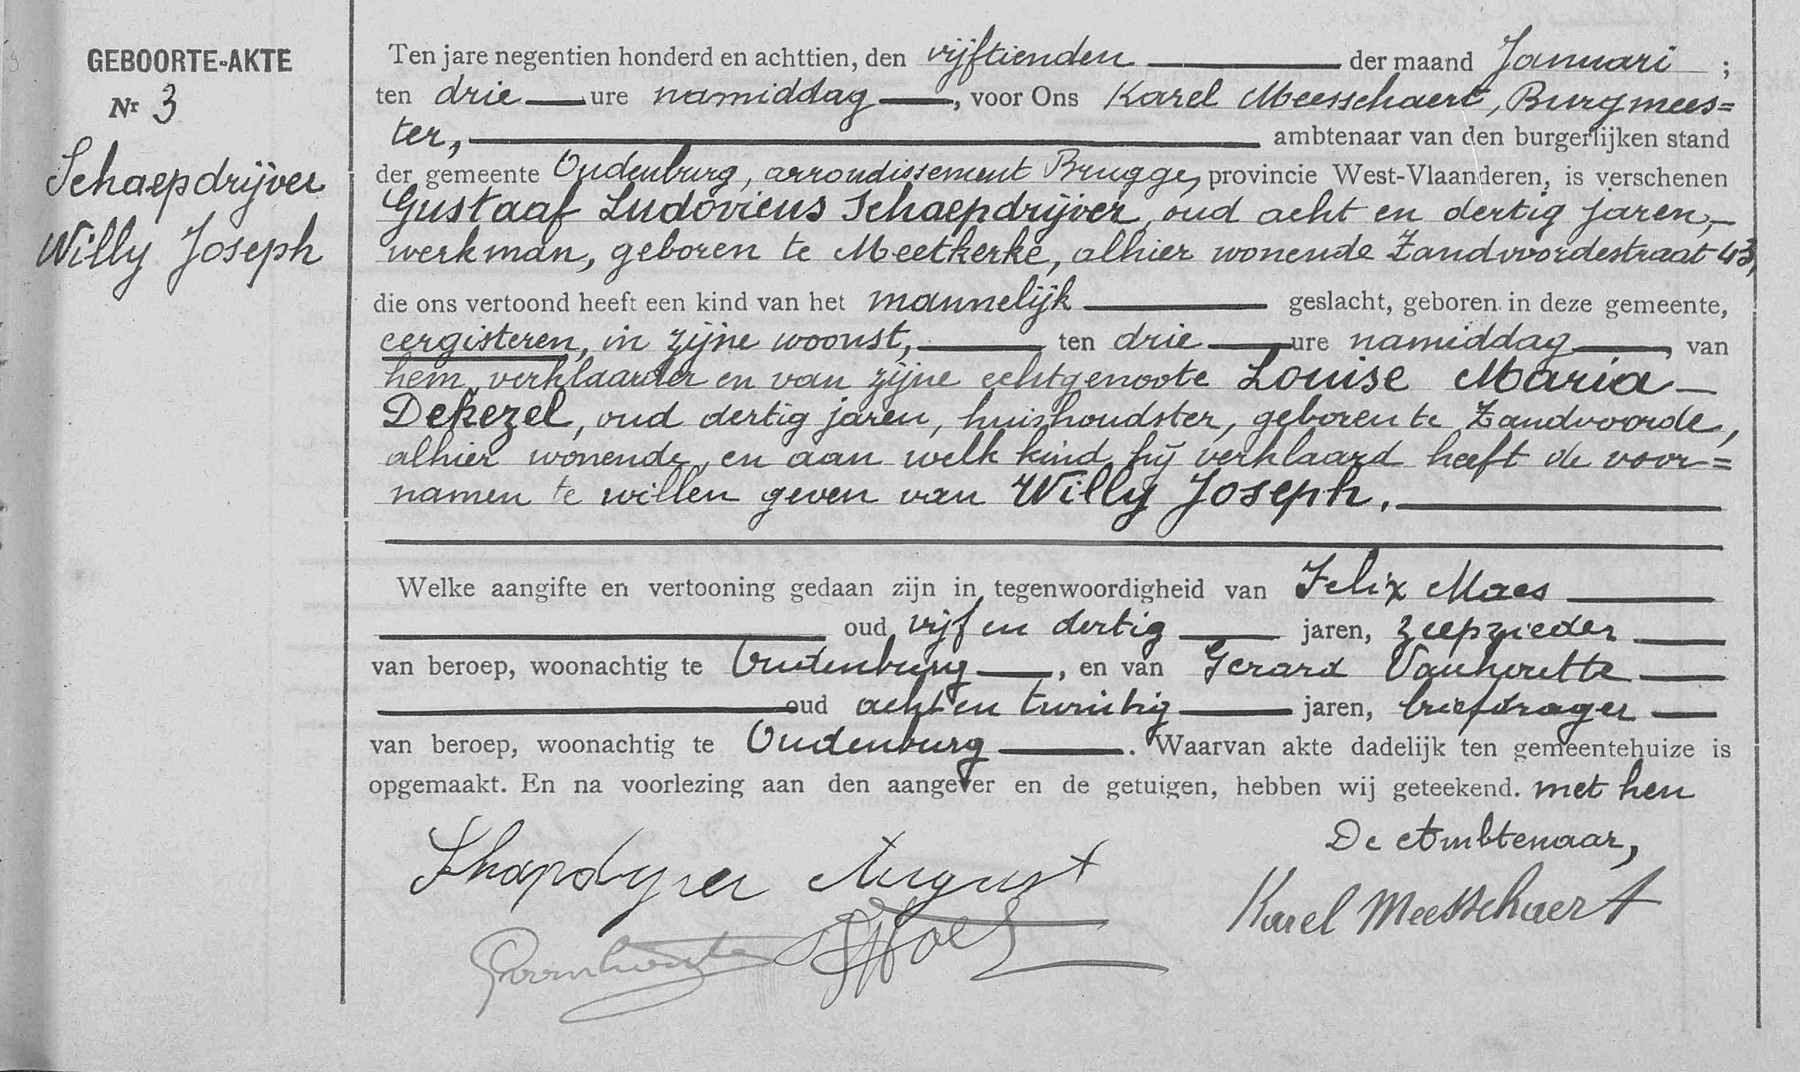 GEBOORTE-AKTE
Nr 3
Schaepdrijver
Willy Joseph
Ten jare negentien honderd en achttien, den vijftienden der maand Januari ;
ten drie ure namiddag, voor Ons Karel Meesschaert, Burgmees=
ter, ambtenaar van den burgerlijken stand
der gemeente Oudenburg, arrondissement Brugge, provincie West-Vlaanderen, is verschenen
Gustaaf Ludovicus Schaepdrijver, oud acht en dertig jaren,
werkman, geboren te Meetkerke, alhier wonende Zandvoordestraat 43,
die ons vertoond heeft een kind van het mannelijk geslacht, geboren in deze gemeente,
eergisteren, in zijne woonst, ten drie ure namiddag, van
hem verklaarder en van zijne echtgenoote Louise Maria
Dekezel, oud dertig jaren, huishoudster, geboren te Zandvoorde,
alhier wonende, en aan welk kind hij verklaard heeft de voor=
namen te willen geven van Willy Joseph.
Welke aangifte en vertooning gedaan zijn in tegenwoordigheid van Felix Maes
oud vijf en dertig jaren, zeepzieder
van beroep, woonachtig te Oudenburg, en van Gerard Vanhoutte
oud acht en twintig jaren, briefdrager
van beroep, woonachtig te Oudenburg. Waarvan akte dadelijk ten gemeentehuize is
opgemaakt. En na voorlezing aan den aangever en de getuigen, hebben wij geteekend. met hen
De Ambtenaar,
August
Karel Meesschaert